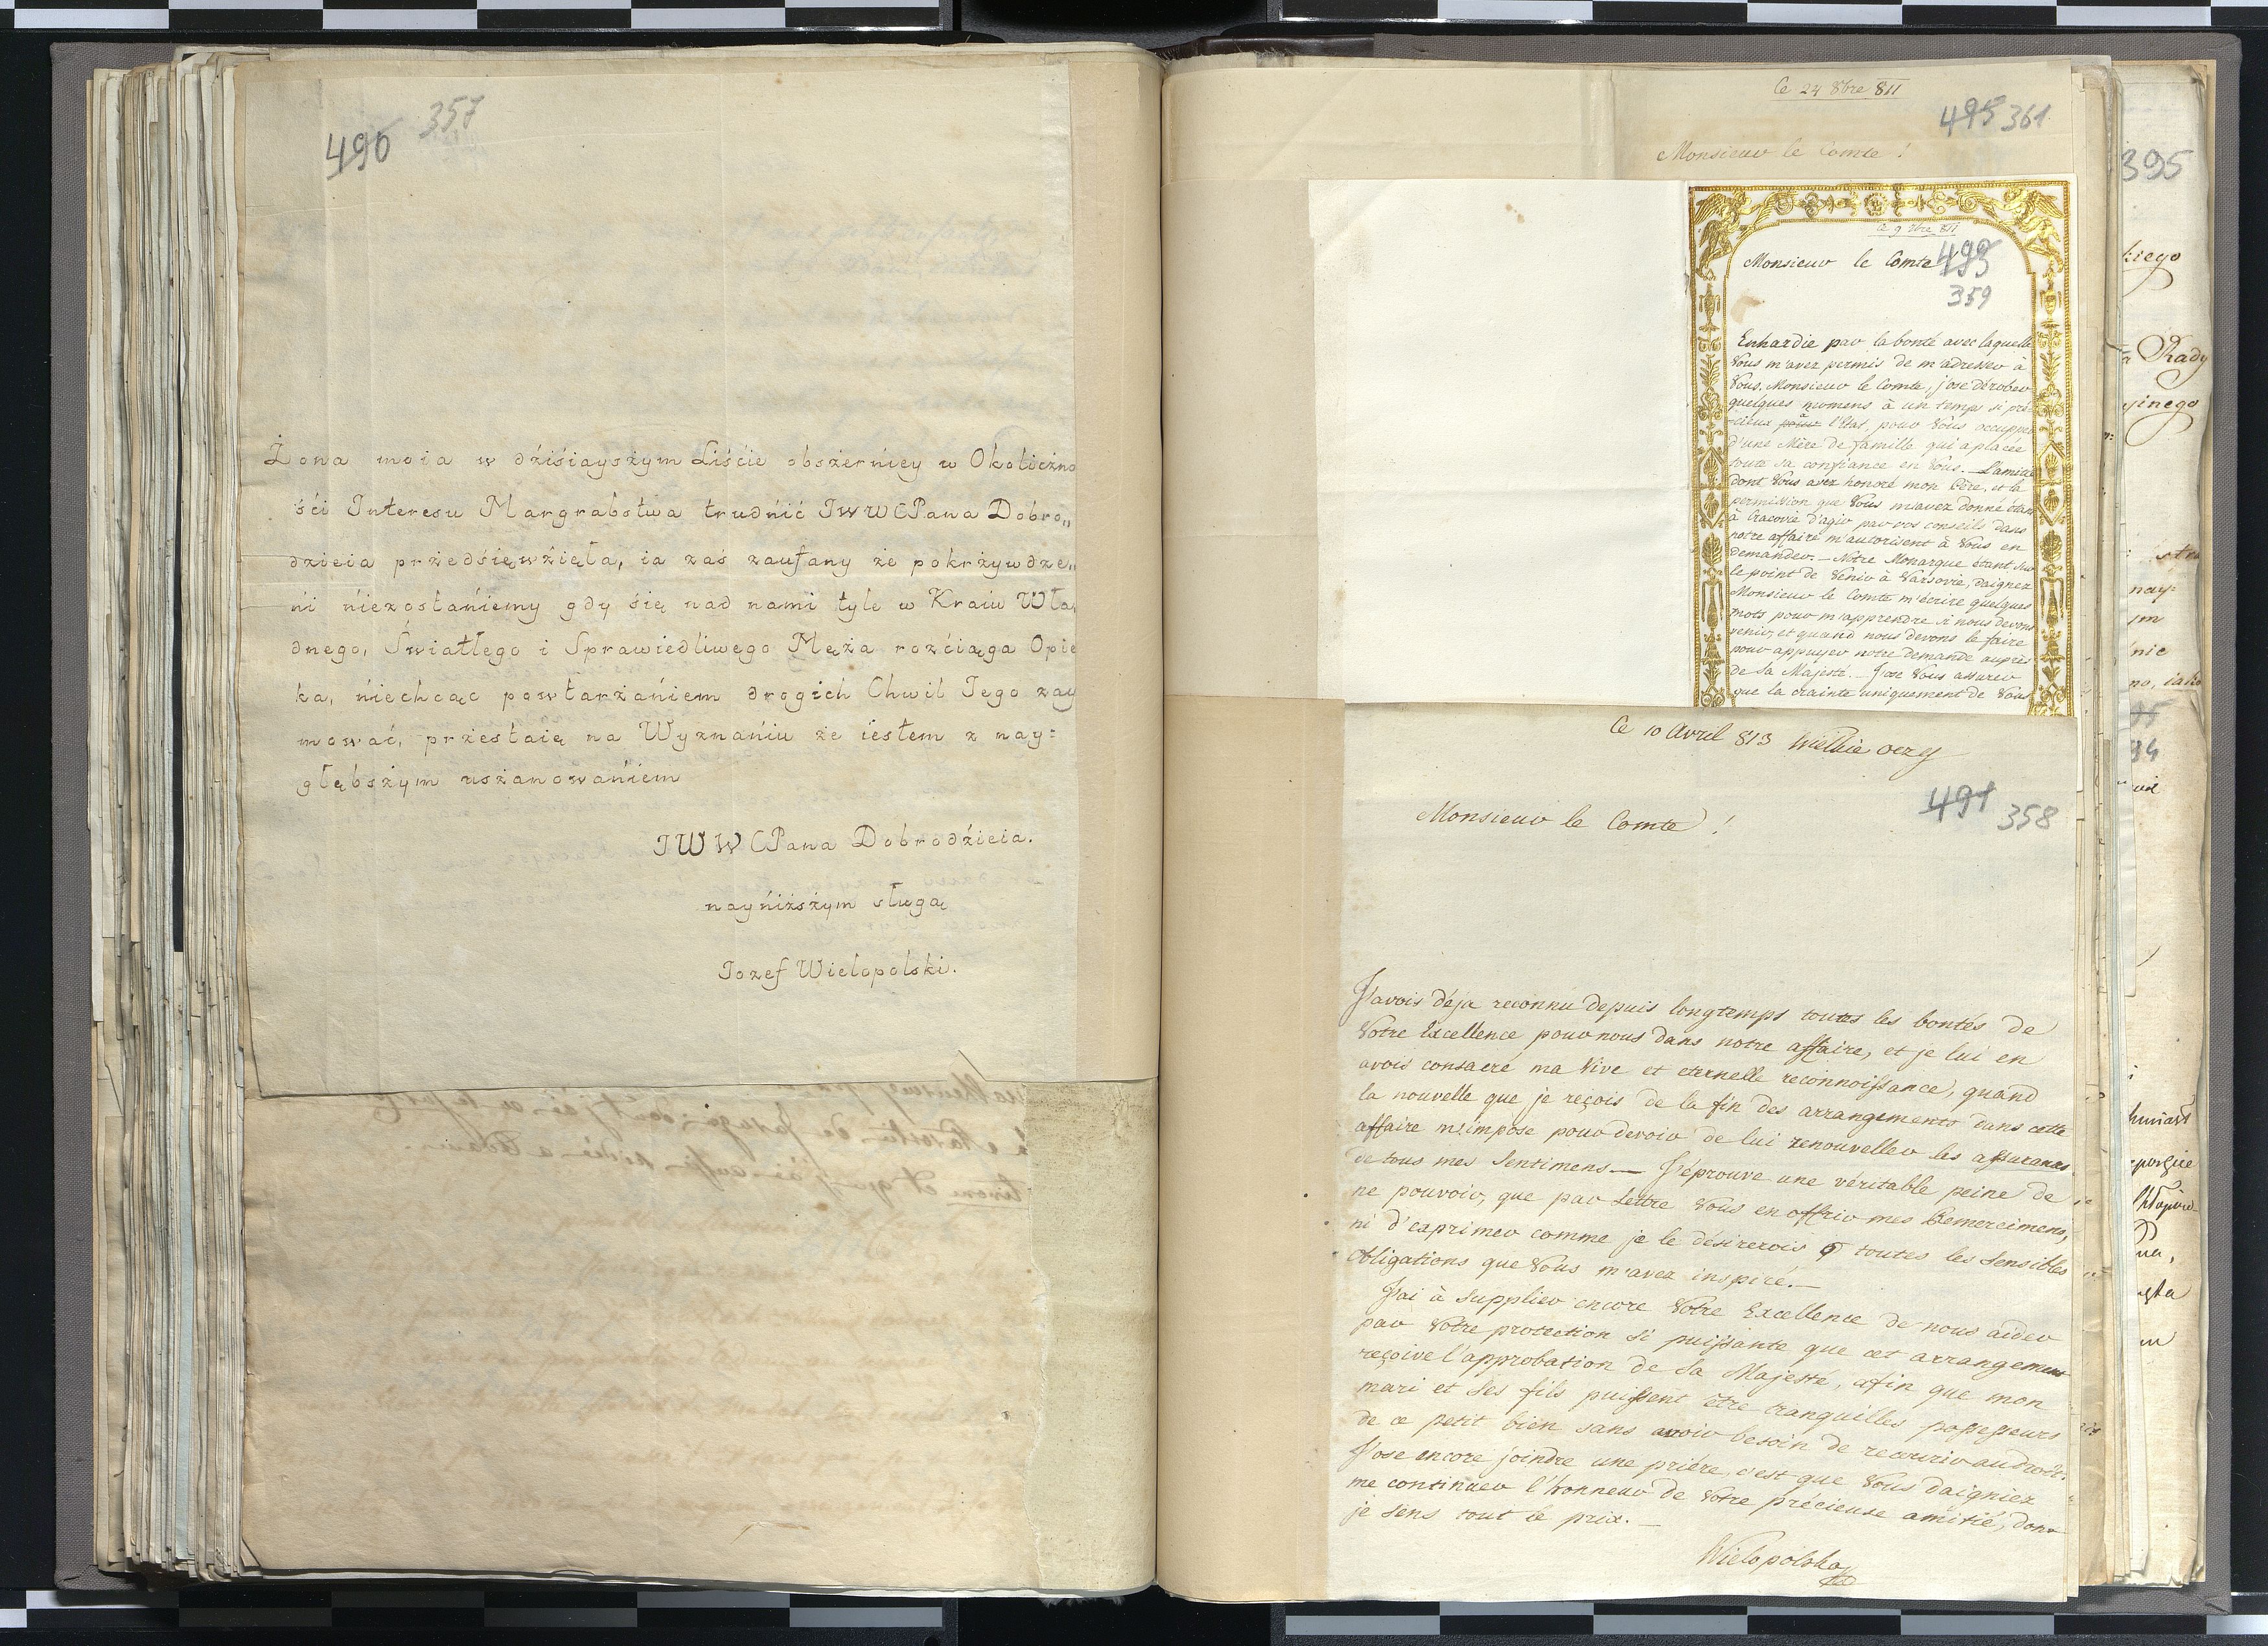 490 357
Żona moia w dźiśiayszym Liście obszerńiey w Okoliczno
śći Interesu Margrabstwa trudńić JWWCPana Dobro„
dzieia przedśięwźięła, ia zaś zaufany że pokrzywdze„
ńi ńiezostańiemy gdy śię nad nami tyle w Kraiu Wła„
dnego, Światłego i Sprawiedliwego Męża rozćiąga Opie
ka, ńiechcąc powtarzańiem drogich Chwil Jego zay
mować, przestaię na Wyznańiu że iestem z nay=
głębszym uszanowańiem
JWWCPana Dobrodźieia.
nayńiższym sługą
Jozef Wielopolski.
Ce 24 8bre 811
495 361
Monsieur le Comte!
Ce 9 9bre 811
Monsieur le Comte
493
359
Enhardie par la bonté avec laquelle
Vous m'avez permis de m'adresser à
Vous, Monsieur le Comte, j'ose dérober
quelques momens à un temps si pré-
cieux à l'Etat, pour Vous occuper
d'une Mère de famille qui a placée
toute sa confiance en Vous. — L'amitié
dont Vous avez honoré mon Père, et la
permission que Vous m'avez donné étant
à Cracovie d'agir par vos conseils dans
notre affaire m'autorisent à Vous en
demander. — Notre Monarque étant sur
le point de Venir à Varsovie, daignez
Monsieur le Comte m'écrire quelques
mots pour m'apprendre si nous devons
venir, et quand nous devons le faire
pour appuyer notre demande auprès
de Sa Majesté. — J'ose Vous assurer
que la crainte uniquement de Vous
Ce 10 Avril 813
491 358
Monsieur le Comte!
J'avois déja reconnu depuis longtemps toutes les bontés de
Votre Excellence pour nous dans notre affaire, et je lui en
avois consacré ma Vive et eternelle reconnoissance, quand
la nouvelle que je reçois de la fin des arrangements dans cette
affaire m'impose pour devoir de lui renouveller les assurances
de tous mes Sentimens — J'éprouve une véritable peine de
ne pouvoir, que par Lettre Vous en offrir mes Remercimens,
ni d'exprimer comme je le désirerois toutes les Sensibles
Obligations que Vous m'avez inspiré. —
J'ai à Supplier encore Votre Excellence de nous aider
par Votre protection si puissante que cet arrangement
reçoive l'approbation de Sa Majesté, afin que mon
mari et Ses fils puissent être tranquilles possesseurs
de ce petit bien sans avoir besoin de recourir au droit.
J'ose encore joindre une prière, c'est que Vous daigniez
me continuer l'honneur de Votre précieuse amitié, dont
je sens tout le prix. —
Wielopolska
395
kiego
Rady